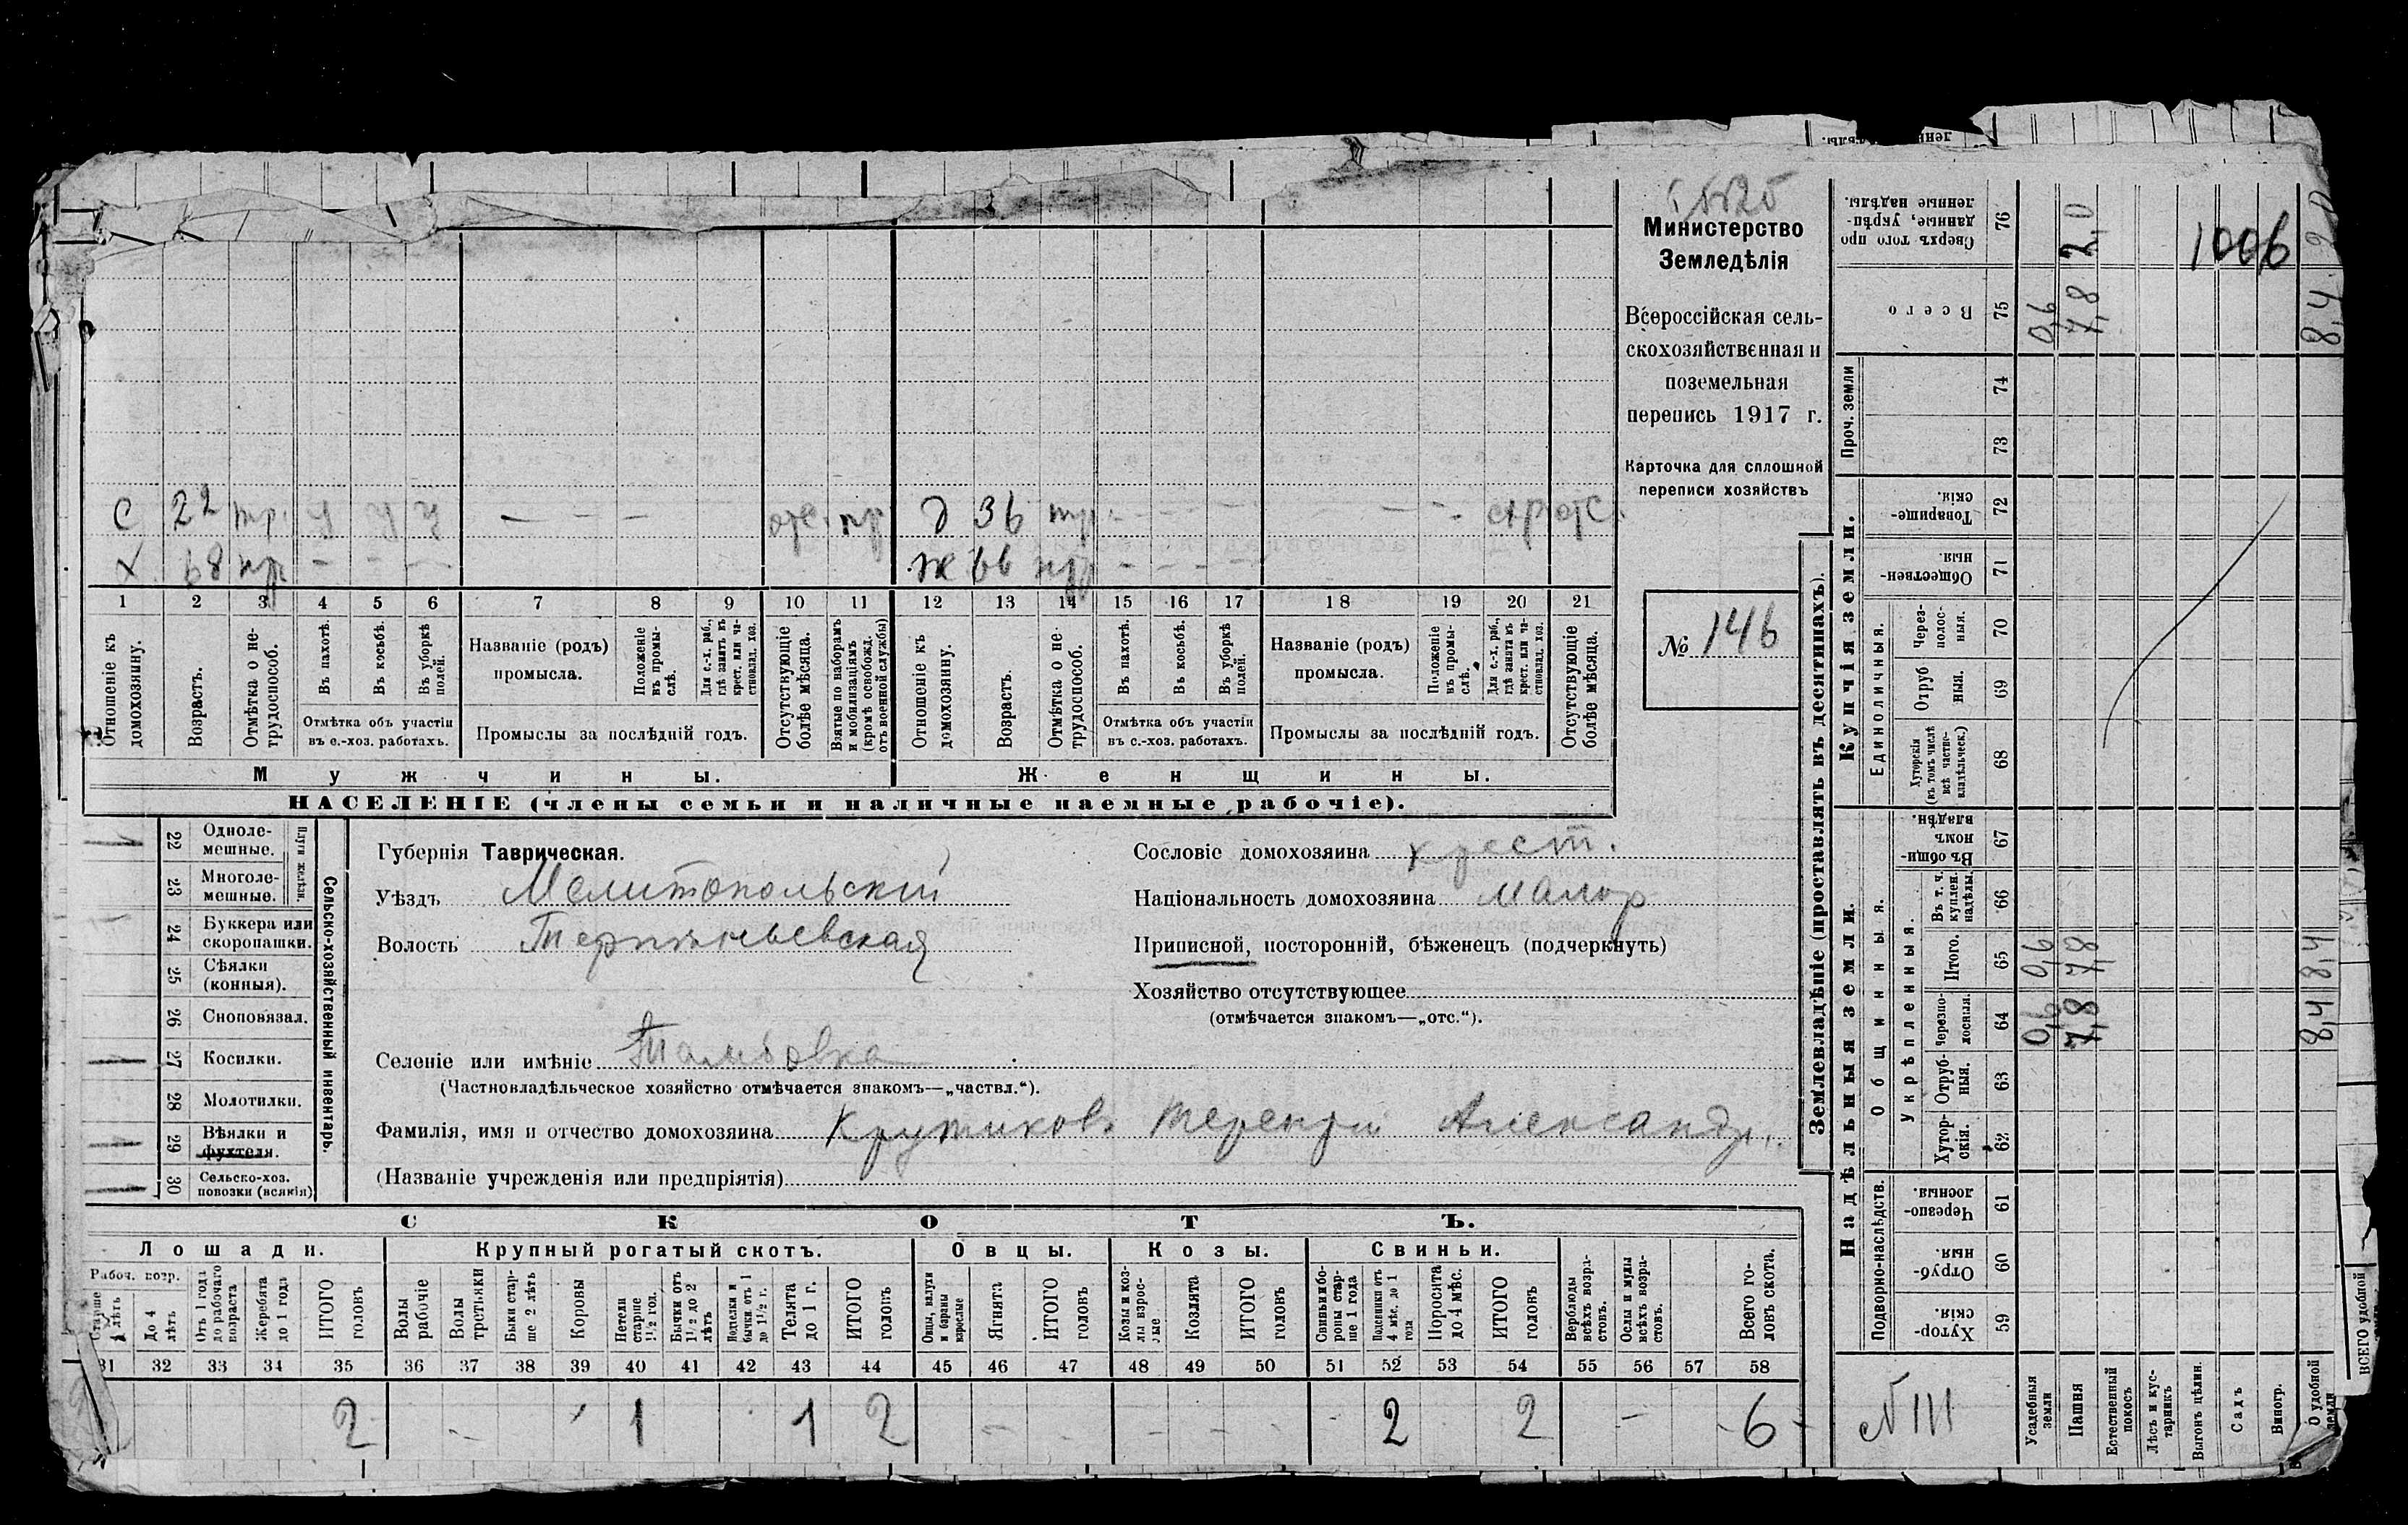 Министерство
Земледѣлія
Всероссійская сель-
скохозяйственная и
поземельная
перепись 1917 г.
Карточка для сплошной
переписи хозяйствъ
№ 146
С 22 тр. у у у — — — отс. пр д 36 тр. - - - - - -
Х 68 нтр - - - Ж 66 нтр - - - -
1 2 3 4 5 6 7 8 9 10 11 12 13 14 15 16 17 18 19 20 21
Отношеніе къ домохозяину.
Возрастъ.
Отмѣтка о не-трудоспособ.
Въ пахотѣ.
Въ косьбѣ.
Въ уборкѣ полей.
Отмѣтка объ участіи
въ с.-хоз. работахъ.
Названіе (родъ)
промысла.
Положеніе въ промы-слѣ.
Для с.-х. раб., гдѣ занятъ въ крест. или ча-стновлад. хоз.
Промыслы за послѣдній годъ.
Отсутствующіе болѣе мѣсяца.
Взятые по наборамъ и мобилизаціямъ (кромѣ освобожд. отъ военной службы)
Отношеніе къ домохозяину.
Возрастъ.
Отмѣтка о не-трудоспособ.
Въ пахотѣ.
Въ косьбѣ.
Въ уборкѣ полей.
Отмѣтка объ участіи
въ с.-хоз. работахъ.
Названіе (родъ)
промысла.
Положеніе въ промы-слѣ.
Для с.-х. раб., гдѣ занята въ крест. или ча-стновлад. хоз.
Промыслы за послѣдній годъ.
Отсутствующіе болѣе мѣсяца.
Мужчины.
Женщины.
НАСЕЛЕНІЕ (члены семьи и наличные наемные рабочіе).
22 Одноле-мешные.
23 Многоле-мешные.
Плуги желѣзн.
24 Буккера или скоропашки.
25 Сѣялки (конныя).
26 Сноповязал.
27 Косилки.
28 Молотилки.
29 Вѣялки и фухтеля.
30 Сельско-хоз. повозки (всякія)
Сельско-хозяйственный инвентарь.
Губернія Таврическая.
Уѣздъ Мелитопольскій
Волость Терпѣньевская
Селеніе или имѣніе Тамбовка
(Частновладѣльческое хозяйство отмѣчается знакомъ—„частвл.“).
Фамилія, имя и отчество домохозяина Крутиковъ Терентій Александр.
(Названіе учрежденія или предпріятія)
Сословіе домохозяина крест.
Національность домохозяина малор
Приписной, посторонній, бѣженецъ (подчеркнуть)
Хозяйство отсутствующее
(отмѣчается знакомъ—„отс.“).
СКОТЪ.
Лошади. Крупный рогатый скотъ. Овцы. Козы. Свиньи.
Рабоч. возр.
Старше 4 лѣтъ
До 4 лѣтъ
Отъ 1 года до рабочаго возраста
Жеребята до 1 года
ИТОГО головъ
Волы рабочіе
Волы третьяки
Быки стар-ше 2 лѣтъ
Коровы
Нетели старше 1½ год.
Бычки отъ 1½ до 2 лѣтъ
Подтелки и бычки отъ 1 до 1½ г.
Телята до 1 г.
ИТОГО головъ
Овцы, валухи и бараны взрослые
Ягнята
ИТОГО головъ
Козы и коз-лы взрос-лые
Козлята
ИТОГО головъ
Свиньи и бо-роны стар-ше 1 года
Подсвинки отъ 4 мѣс. до 1 года
Поросята до 4 мѣс.
ИТОГО головъ
Верблюды всѣхъ возра-стовъ.
Ослы и мулы всѣхъ возра-стовъ.
Всего го-ловъ скота.
31 32 33 34 35 36 37 38 39 40 41 42 43 44 45 46 47 48 49 50 51 52 53 54 55 56 57 58
2 - 1 1 2 - - - - 2 2 - 6
Землевладѣніе (проставлять въ десятинахъ).
Надѣльныя земли.
Купчія земли.
Проч. земли
Подворно-наслѣдств.
Общинныя.
Укрѣпленныя.
Единоличныя.
76 Сверхъ того про данные, укрѣп-ленные надѣлы.
75 Всего
74
73
72 Товарище-скія.
71 Обществен-ныя.
70 Через-полос-ныя.
69 Отруб ныя.
68 Хуторскія (въ томъ числѣ всѣ частно-владѣльческ.)
67 Въ общин-номъ владѣн.
66 Въ т. ч. куплен. надѣлы.
65 Итого.
64 Черезпо-лосныя.
63 Отруб-ныя.
62 Хутор-скія.
61 Черезпо-лосныя.
60 Отруб-ныя.
59 Хутор-скія.
2,0
1006
0,6 7,8 8,4
0,6 7,8 8,4
0,6 7,8 8,4
№ 111
Усадебныя земли
Пашня
Естественный покосъ
Лѣсъ и кус-тарникъ
Выгонъ цѣлин.
Садъ
Виногр.
О удобной земли
ВСЕГО удобной